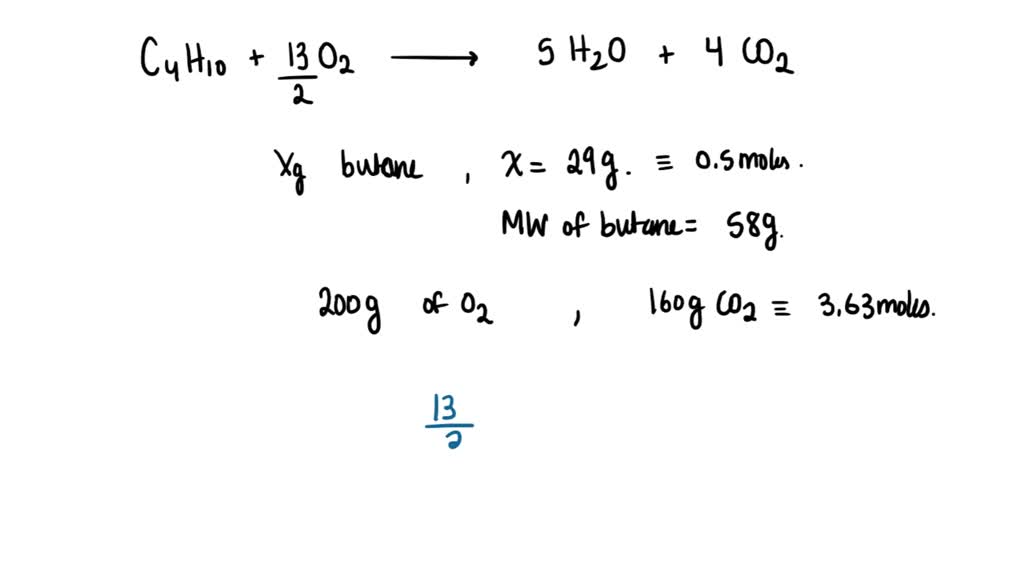 C₄H₁₀ + 13/2 O₂ ⟶ 5 H₂O + 4 CO₂
Xg butane , x = 29g. ≡ 0.5 moles.
MW of butane = 58g.
200g of O₂ , 160g CO₂ ≡ 3.63 moles.
13/2